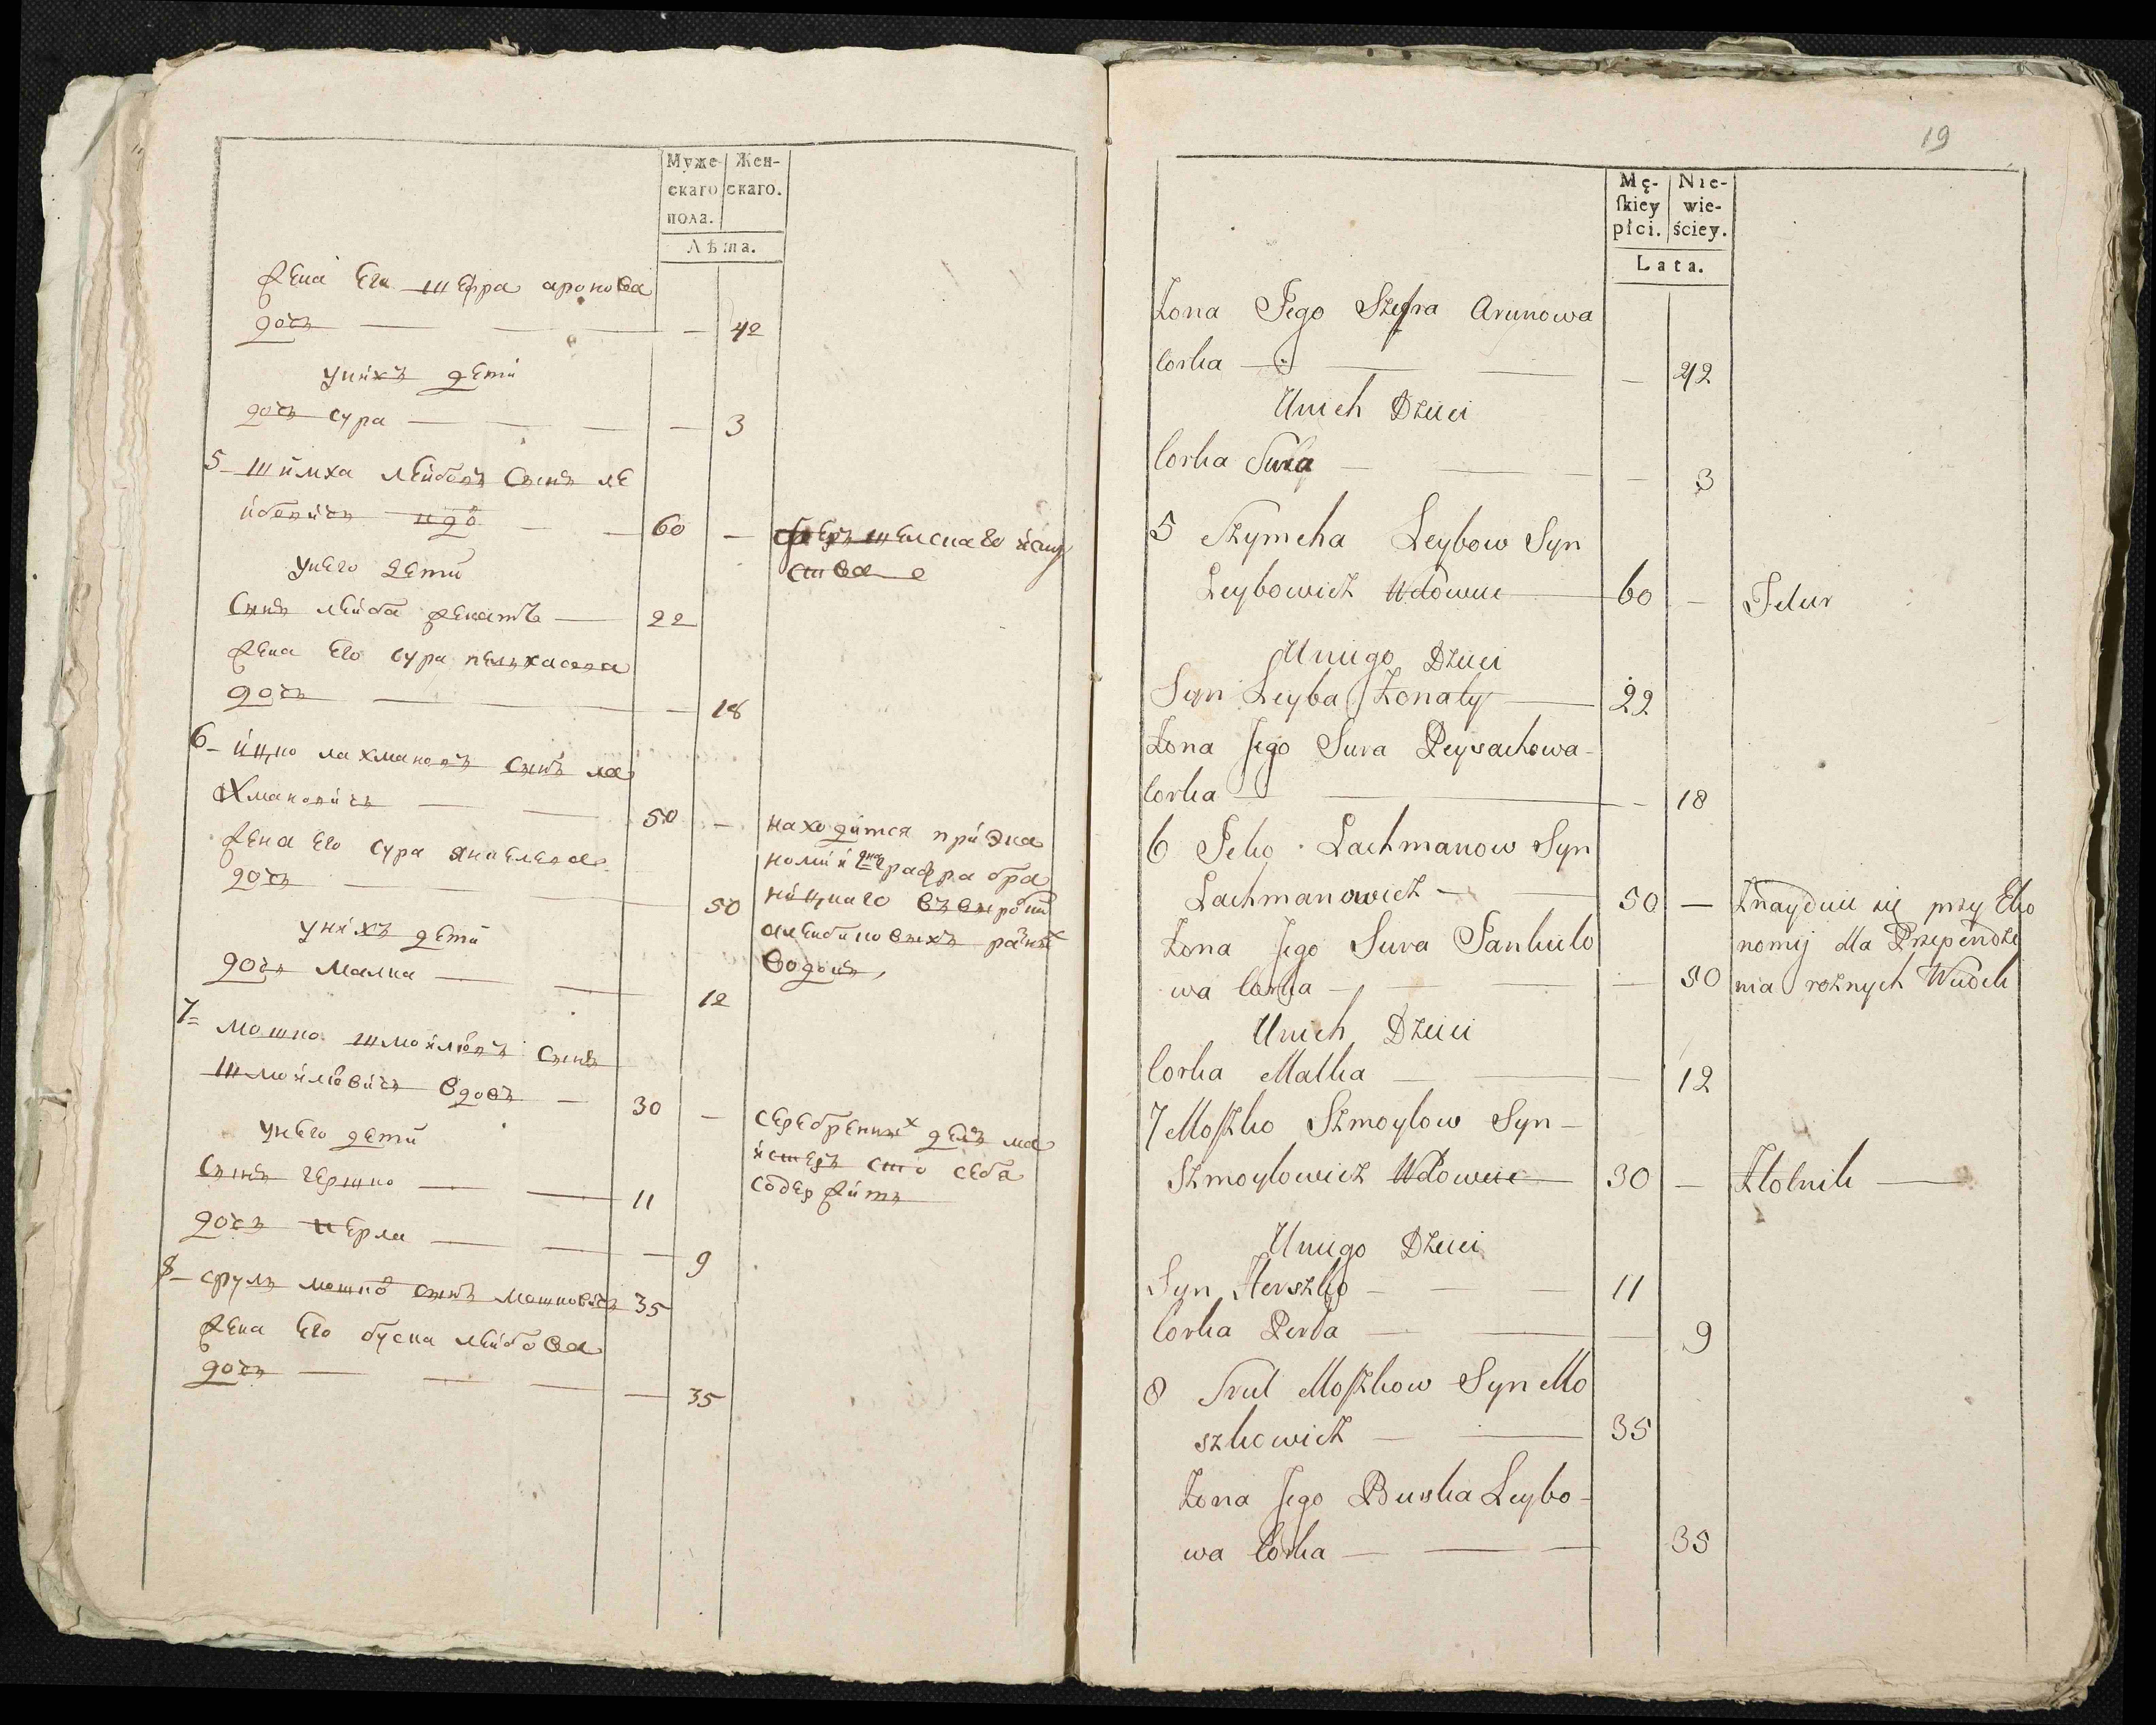 Муже-
скаго
пола.
Жен-
скаго.
Лѣта.
жена его шефра аронова
дочь — — 42
унихъ дети
дочь сура — — — 3
5 шимха лейбовъ сынъ ле
йбовичъ вдо — — 60 —
унего дети
сынъ лейба женатъ — 22
жена его сура
дочь — — — 18
6 ицко лахмановъ сынъ ла
хмановичъ — — 50 — находится при эко
жена его сура янкелева номии графа бра
дочь — — 50 ницкаго
унихъ дети
дочь малка — — 12 водокъ,
7 мошко шмойловъ сынъ
шмойловичъ вдовъ — 30 — серебреных делъ ма
унего дети йстеръ себа
сынъ гершко — — 11 содержитъ
дочь перла — — — 9
8 сруль мошков сынъ мошковичъ 35
жена его буска лейбова
дочь — — — — 35
19
Mę-
skiey
płci.
Nie-
wie-
ściey.
Lata.
Żona Jego Szefra Arunowa
Corka — — — — 42
Unich Dzieci
Corka Sura — — — 3
5 Szymcha Leybow Syn
Leybowicz Wdowiec — 60 — Felur
Uniego Dzieci
Syn Leyba Żonaty — 22
Żona Jego Sura Peysachowa
Corka — — — 18
6 Icko Lachmanow Syn
Lachmanowicz — — 50 — Znayduie się przy Eko
Żona Jego Sura Jankielo nomij dla Przependze
wa Corka — — — — 50 nia rożnych Wudek
Unich Dzieci
Corka Malka — — — 12
7 Moszko Szmoylow Syn —
Szmoylowicz Wdowiec — 30 — Złotnik —
Uniego Dzieci
Syn Herszko — — — 11
Corka Perla — — — 9
8 Srul Moszkow Syn Mo
szkowicz — — 35
Żona Jego Buska Leybo-
wa Corka — — — 35